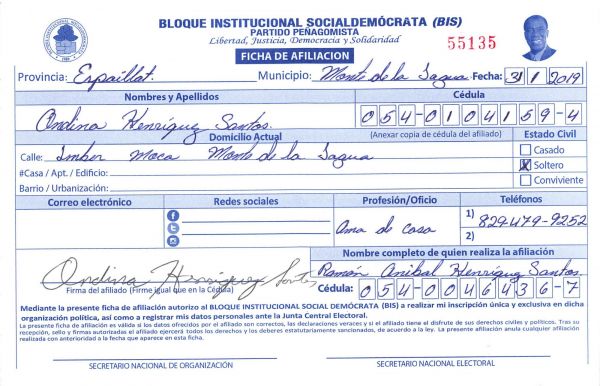 BLOQUE INSTITUCIONAL SOCIALDEMÓCRATA (BIS)
PARTIDO PEÑAGOMISTA
Libertad, Justicia, Democracia y Solidaridad
55135
FICHA DE AFILIACION
Provincia: Espaillat. Municipio: Monte de la Jagua Fecha: 31/1/2019
Nombres y Apellidos Cédula
Ondina Henriquez Santos. 054-0104159-4
Domicilio Actual (Anexar copia de cédula del afiliado) Estado Civil
Calle: Imber Moca Monte de la Jagua Casado
#Casa / Apt. / Edificio: X Soltero
Barrio / Urbanización: Conviviente
Correo electrónico Redes sociales Profesión/Oficio Teléfonos
Ama de casa 1) 829-479-9252
2)
Nombre completo de quien realiza la afiliación
Ondina Henriquez Santos Ramón Anibal Henriquez Santos.
Firma del afiliado (Firme igual que en la Cédula) Cédula: 054-0046436-7
Mediante la presente ficha de afiliación autorizo al BLOQUE INSTITUCIONAL SOCIAL DEMÓCRATA (BIS) a realizar mi inscripción única y exclusiva en dicha
organización política, así como a registrar mis datos personales ante la Junta Central Electoral.
La presente ficha de afiliación es válida si los datos ofrecidos por el afiliado son correctos, las declaraciones veraces y si el afiliado tiene el disfrute de sus derechos civiles y políticos. Tras su
recepción, sello y firmas autorizadas el afiliado ejercerá todos los derechos y los deberes estatutariamente sancionados, de acuerdo a la ley. La presente afiliación anula cualquier afiliación
realizada con anterioridad a la fecha que aparece en esta ficha.
SECRETARIO NACIONAL DE ORGANIZACIÓN SECRETARIO NACIONAL ELECTORAL